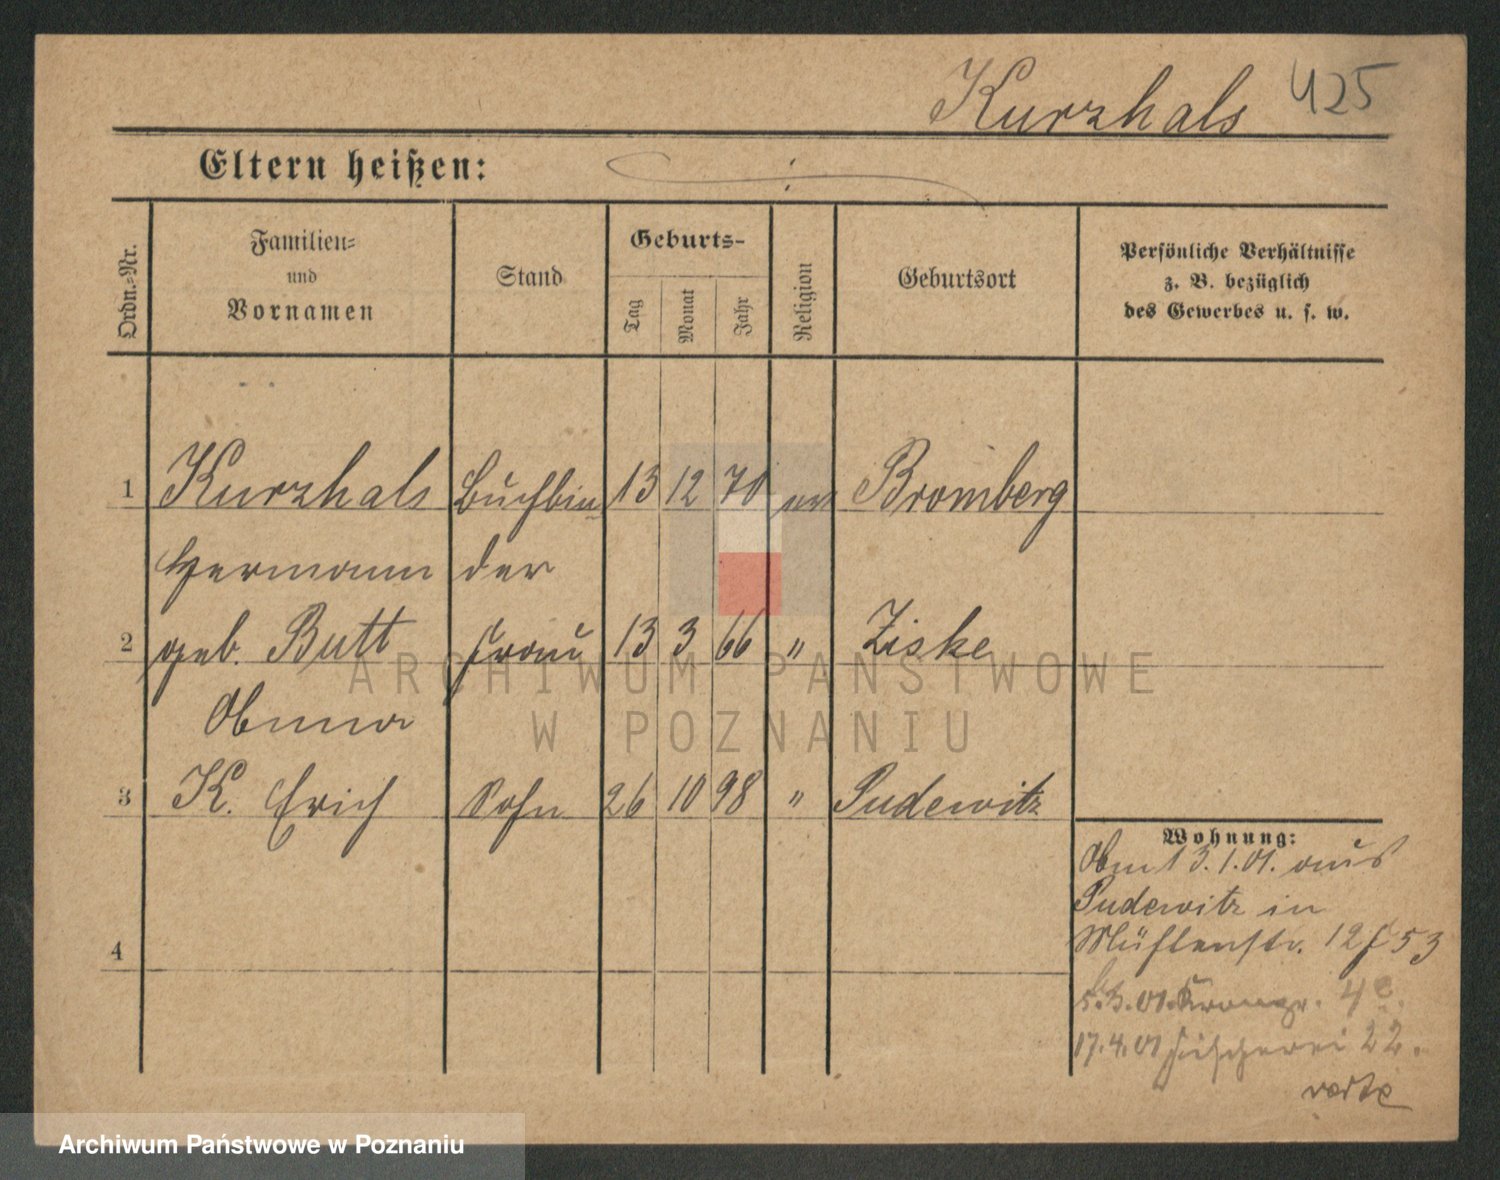 Kurzhals 425
Eltern heißen:
Ordn.=Nr.
Familien=
und
Vornamen
Stand
Geburts-
Tag
Monat
Jahr
Religion
Geburtsort
Persönliche Verhältnisse
z. B. bezüglich
des Gewerbes u. s. w.
1 Kurzhals Buchbin 13 12 70 ev Bromberg
Hermann der
2 geb. Butt Frau 13 3 66 " Ziske
3 K. Erich Sohn 26 10 98 " Pudewitz
4
Wohnung:
13.1.01. aus
Pudewitz in
Mühlenstr. 12 53
5.3.01. 4
17.4.01 Fischerei 22.
verte
ARCHIWUM PAŃSTWOWE
W POZNANIU
Archiwum Państwowe w Poznaniu